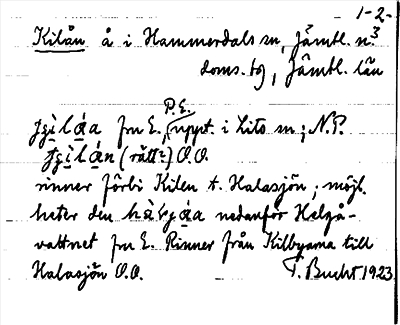 1-2-
Kilån å i Hammerdals sn, Jämtl. n:3
doms. tg, Jämtl. län
P.E.
fn E, uppt. i Lits sn; N.P.
(rätt:) O.O.
rinner förbi Kilen t. Halasjön; möjl.
heter den nedanför Helgå-
vattnet fn E. Rinner från Kilbyarna till
Halasjön O.O. T. Bucht 1923